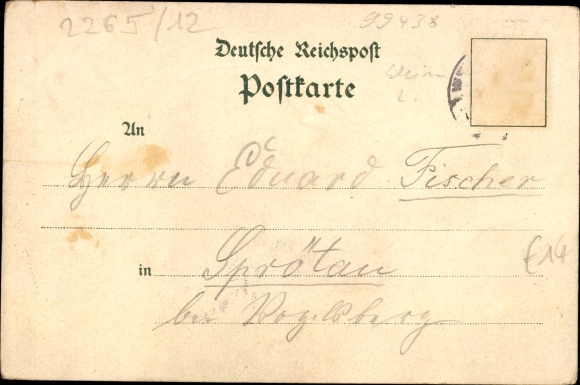 2265/12
99438
Deutsche Reichspost
Postkarte
An
Herrn Eduard Fischer
in Sprötau
bei Vogelsberg
£14